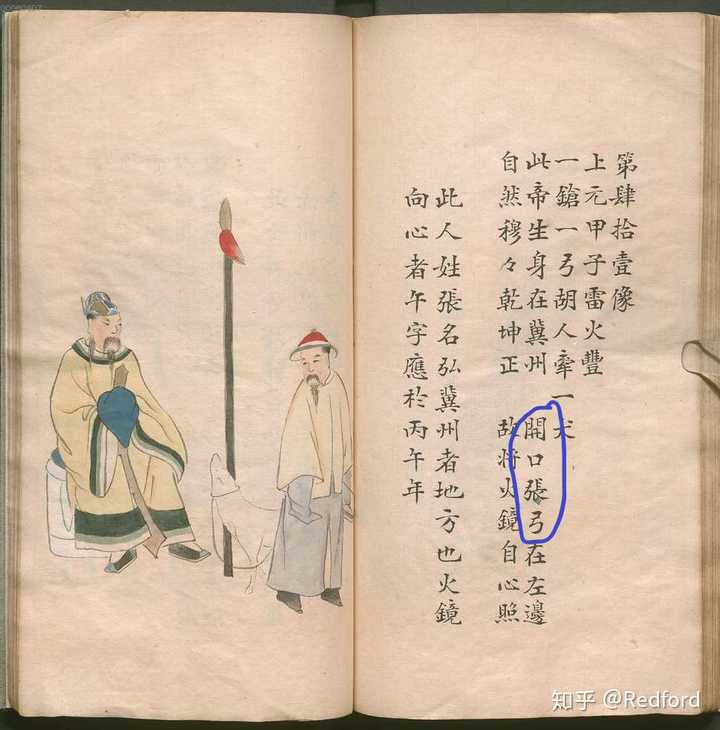 第肆拾壹像
上元甲子雷火豐
一鎗一弓胡人牽一犬
此帝生身在冀州 開口張弓在左邊
自然穆々乾坤正 故將火鏡自心照
此人姓張名弘冀州者地方也火鏡
向心者午字應於丙午年
知乎 @Redford